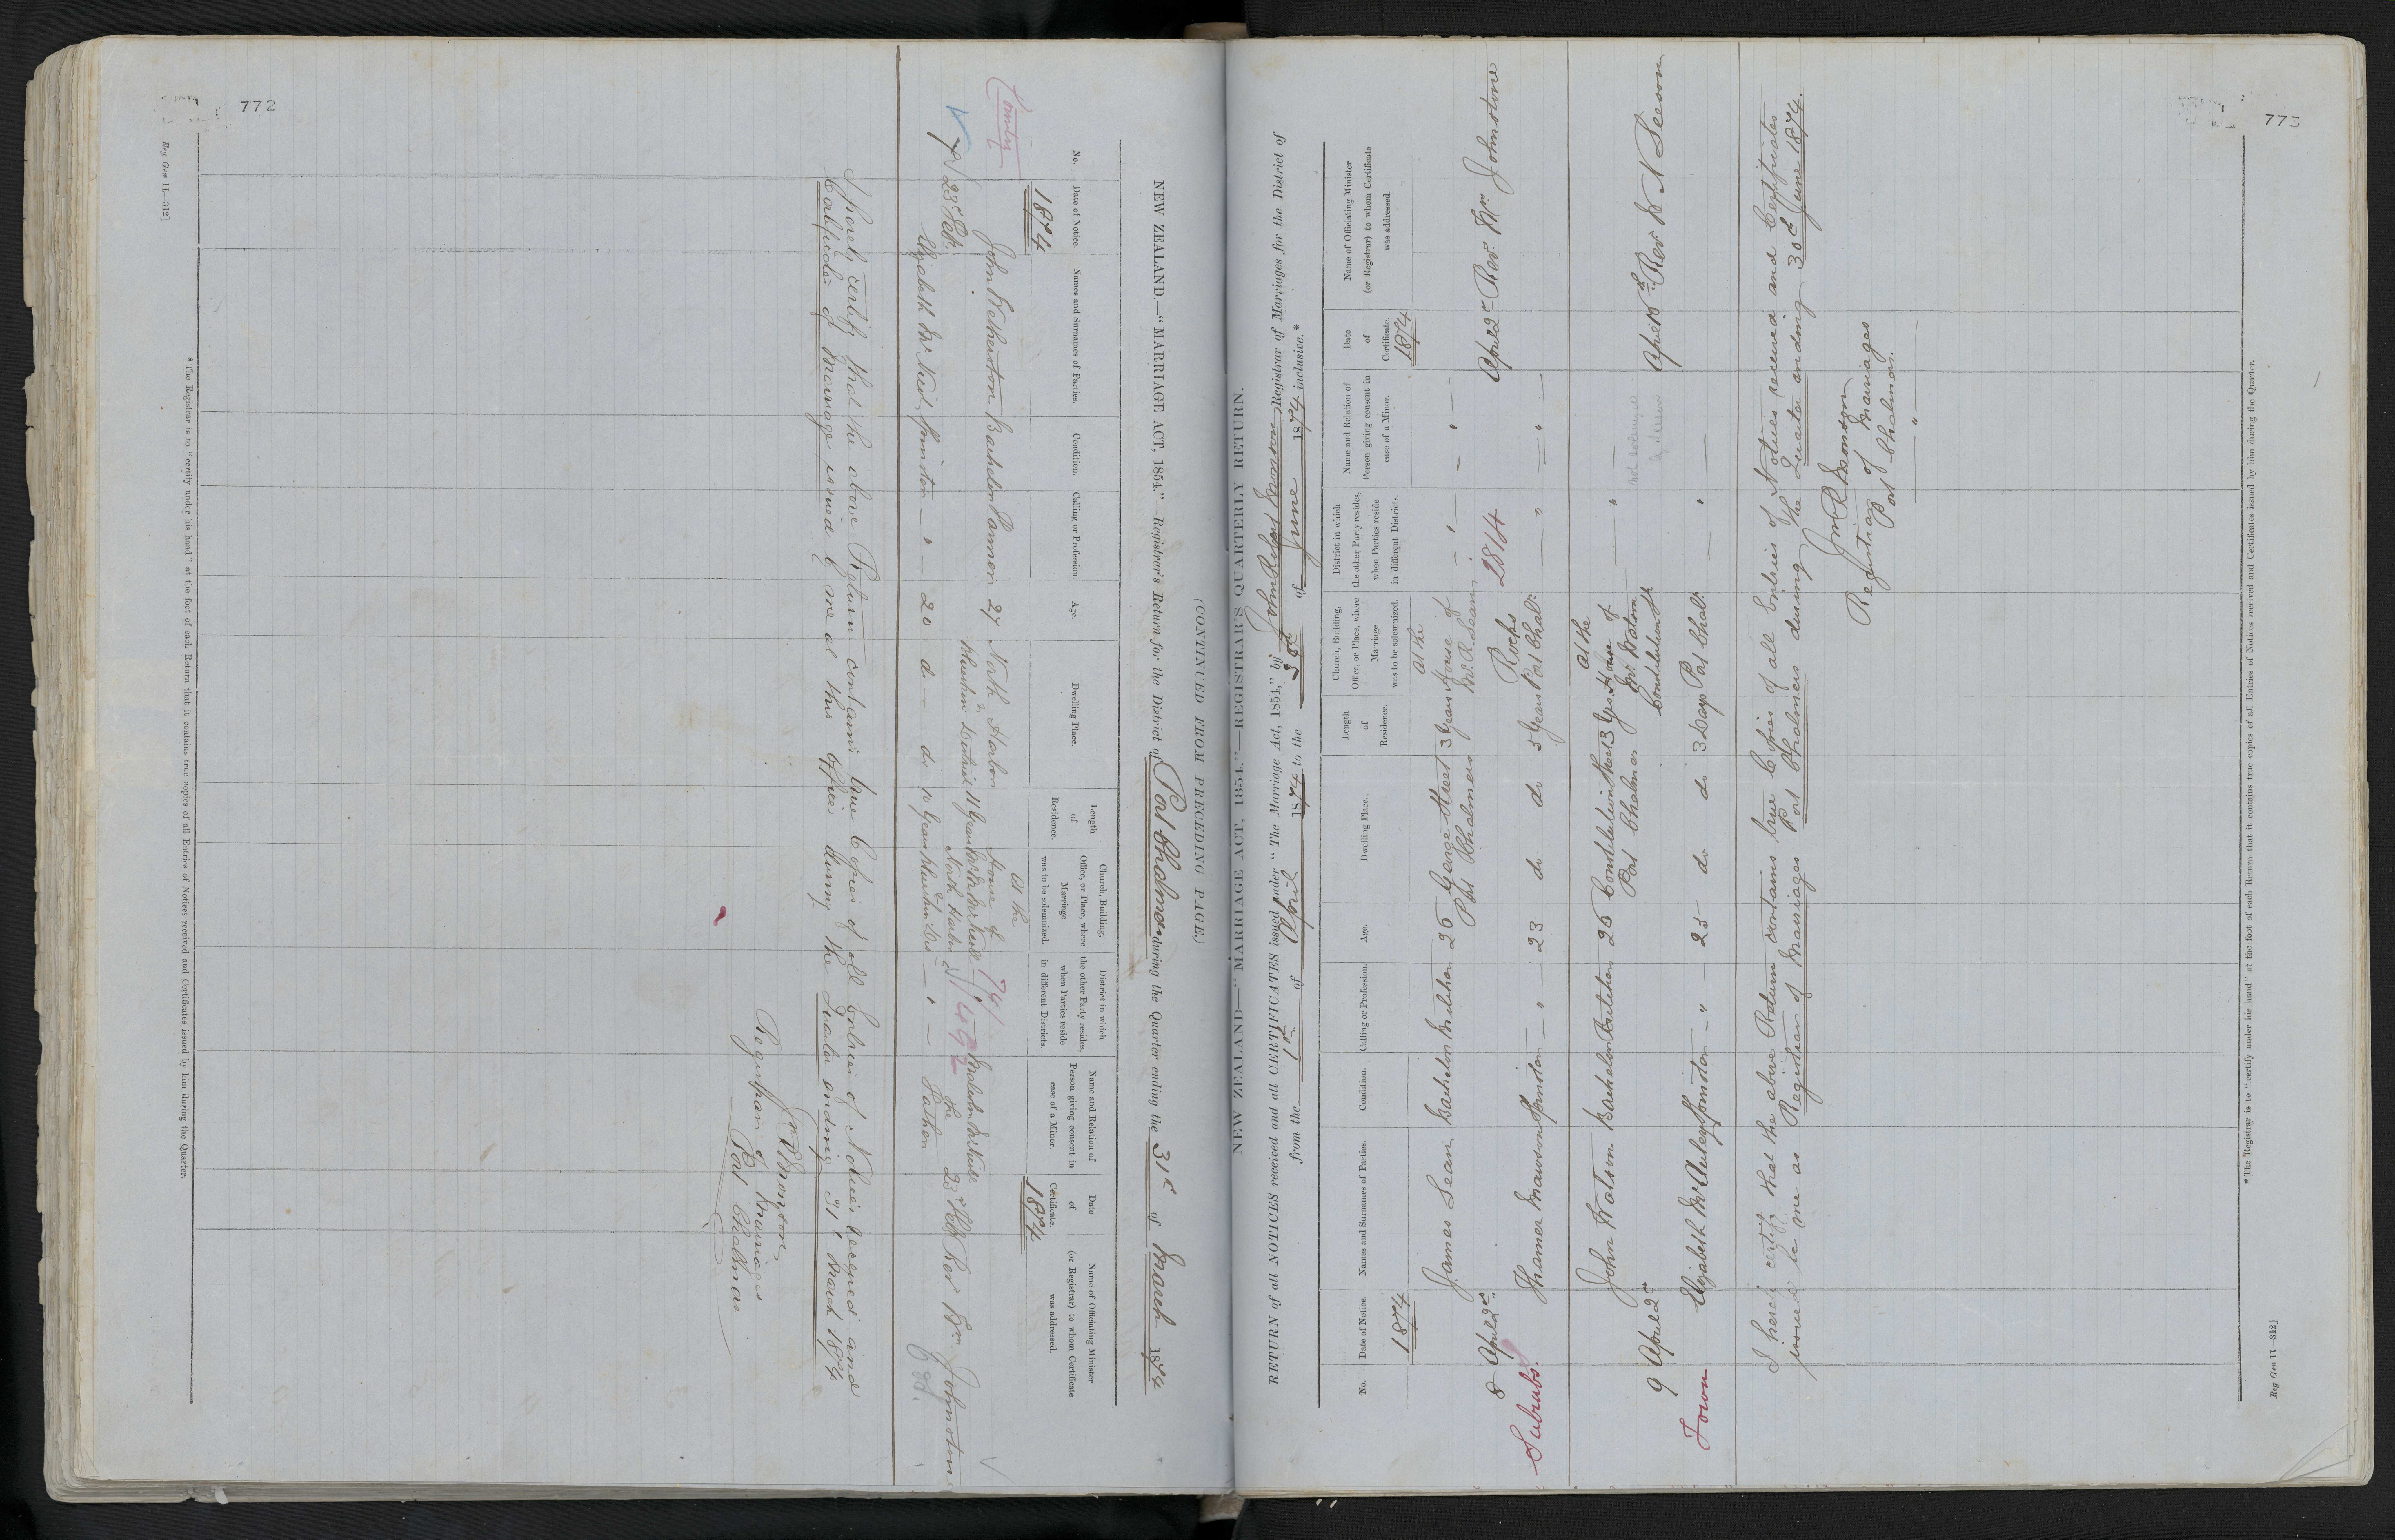 772
(CONTINUED FROM PRECEDING PAGE.)
NEW ZEALAND.—"MARRIAGE ACT, 1854."—Registrar's Return for the District of Port Chalmers during the Quarter ending the 31st of March 1874
No.
Date of Notice.
Names and Surnames of Parties.
Condition.
Calling or Profession.
Age.
Dwelling Place.
Length of Residence.
Church, Building, Office, or Place, where Marriage was to be solemnized.
District in which the other Party resides, when Parties reside in different Districts.
Name and Relation of Person giving consent in case of a Minor.
Date of Certificate.
Name of Officiating Minister (or Registrar) to whom Certificate was addressed.
Country
1874
1874
7
23rd Feby
John Bachelor Farmer 27 North Harbor &
Blueskin District 11 Years
At the House of
North Harbor &
741
the Father
23rd Feby
Rev Wm Johnstone
Elizabeth Spinster — " — 20 do — do 10 Years
I hereby certify that the above Return contains true Copies of all Entries of Notices received and
Certificates of Marriage issued by me at this office during the Quarter ending 31st March 1874
Jn R Monson
Registrar of Marriages
Port Chalmers
*The Registrar is to "certify under his hand" at the foot of each Return that it contains true copies of all Entries of Notices received and Certificates issued by him during the Quarter.
Reg Gen 11—312]
773
NEW ZEALAND—"MARRIAGE ACT, 1854."—REGISTRAR'S QUARTERLY RETURN.
RETURN of all NOTICES received and all CERTIFICATES issued under "The Marriage Act, 1854," by John Robert Monson Registrar of Marriages for the District of
from the 1st of April 1874 to the 30th of June 1874 inclusive.*
No.
Date of Notice.
Names and Surnames of Parties.
Condition.
Calling or Profession.
Age.
Dwelling Place.
Length of Residence.
Church, Building, Office, or Place, where Marriage was to be solemnized.
District in which the other Party resides, when Parties reside in different Districts.
Name and Relation of Person giving consent in case of a Minor.
Date of Certificate.
Name of Officiating Minister (or Registrar) to whom Certificate was addressed.
1874
1874
8 April 2nd
James Sean Bachelor Butcher 26 George Street Port Chalmers 3 Years
At the House of Mr. R. Sean
2814
April 2nd Rev. Wm Johnstone
Suburbs.
Mawson Spinster — " — 23 do do 5 Years Port Chalrs
9 April 2nd
John Watson Bachelor Butcher 26 Constitution Street Port Chalmers 3 Yrs.
At the House of Mr Watson Constitution St
April Rev W N Seeson
Town
Elizabeth McAuley Spinster — " — 25 — do do 3 Days Port Chalrs
I hereby certify that the above Return contains true Copies of all Entries of Notices received and Certificates
issued by me as Registrar of Marriages Port Chalmers during the Quarter ending 30th June 1874.
Jn R Monson
Registrar of Marriages
Port Chalmers.
*The Registrar is to "certify under his hand" at the foot of each Return that it contains true copies of all Entries of Notices received and Certificates issued by him during the Quarter.
Reg Gen 11—312]